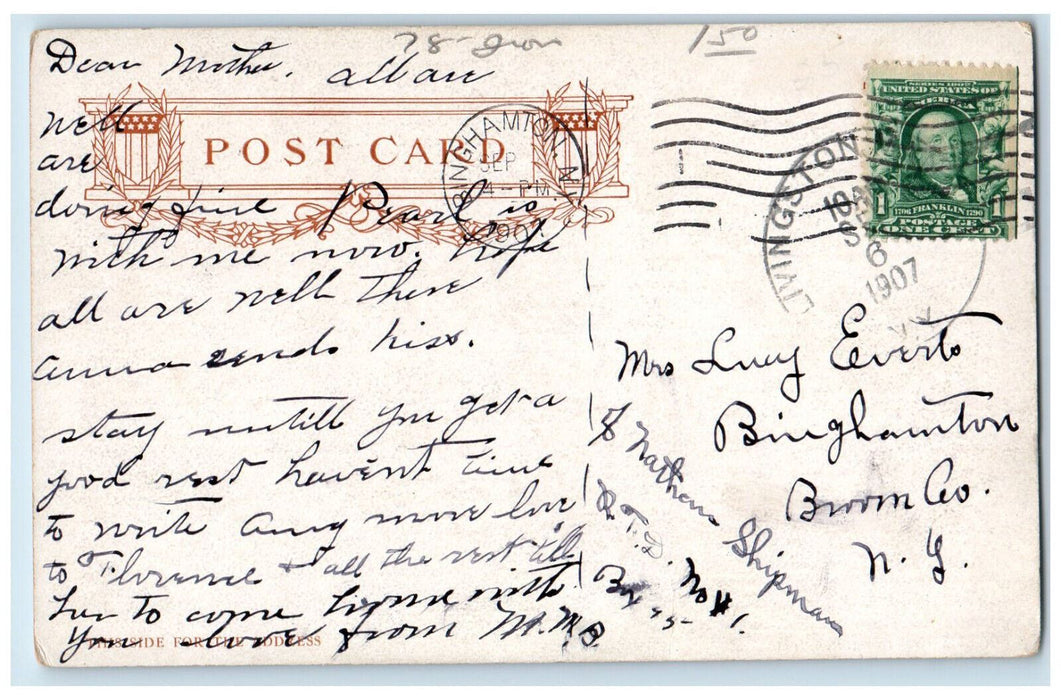 78- Iron
150
Dear Mother, all are
well
are
doing fine Pearl is
with me now. Hope
all are well there
Anna sends kiss.
stay untill you get a
good rest havent time
to write any more love
to Florence + all the rest tell
her to come home with
you love from M.M.B.
POST CARD
THIS SIDE FOR THE ADDRESS
BINGHAMTON, N.
SEP
4-PM
190
LIVINGSTON
6
1907
UNITED STATES OF
AMERICA
1
1706 FRANKLIN 1790
POSTAGE
ONE CENT
Mrs Lucy Everts
Binghamton
Broom Co.
N. Y.
% Nathan Shipman
R.F.D. No #1.
Box 25